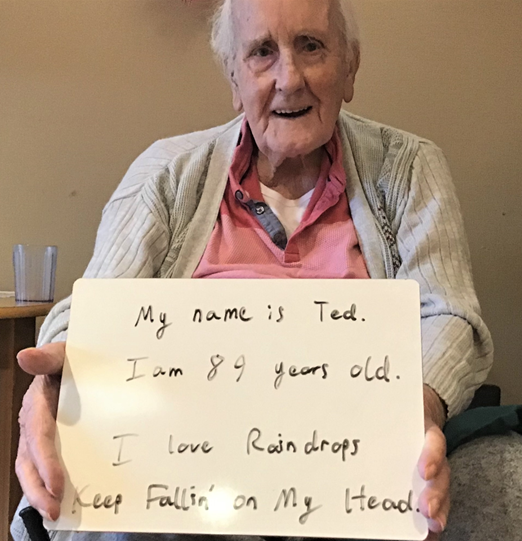 My name is Ted.
I am 89 years old.
I love Raindrops
Keep Fallin' on My Head.